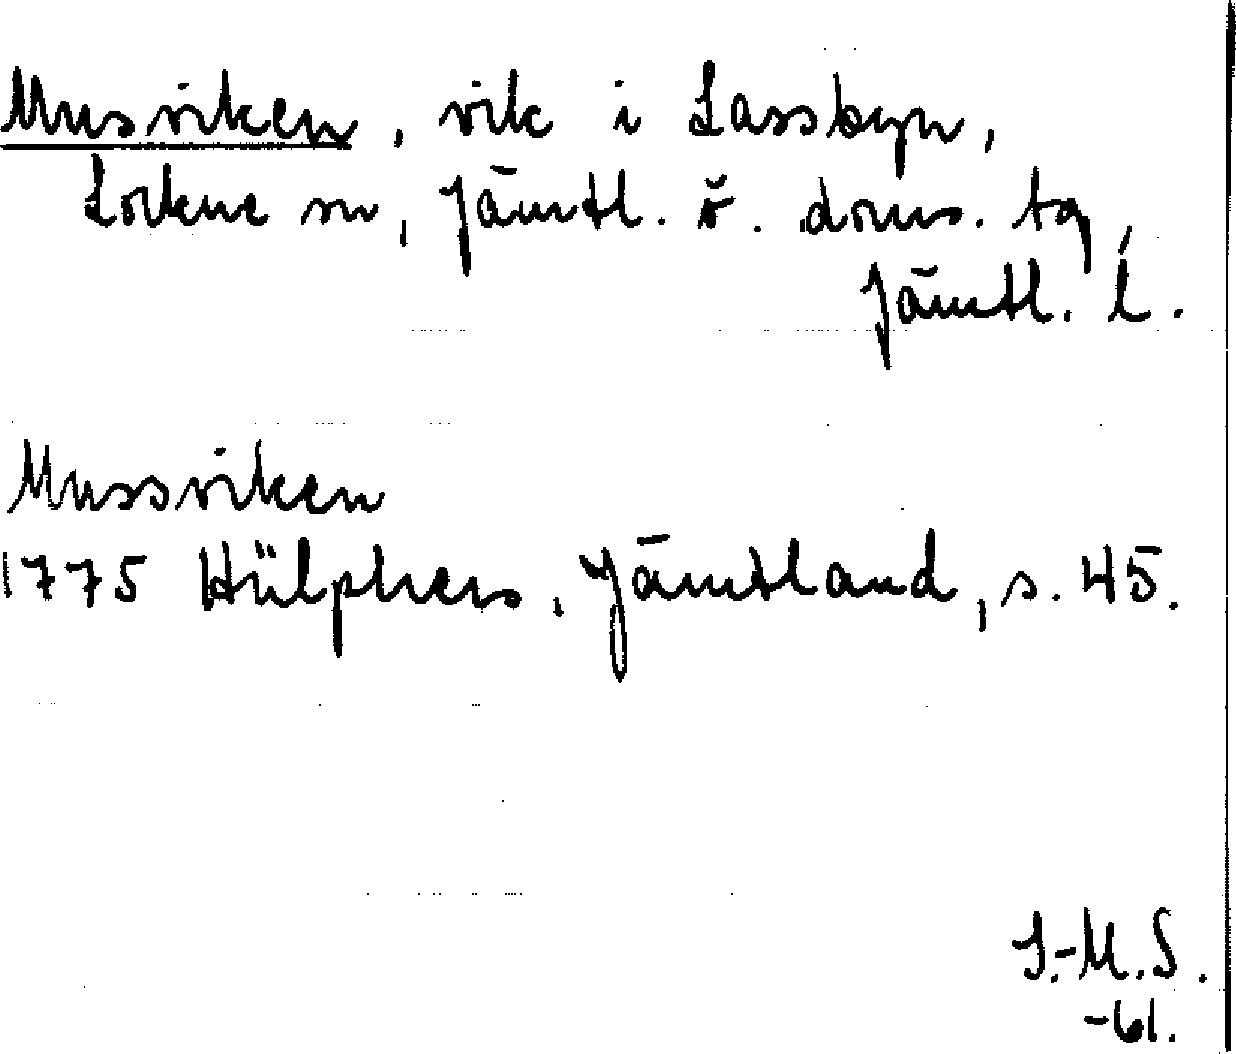 Musviken, vik i Lassbyn,
Lockne sn, Jämtl. ö. doms. tg,
Jämtl. l.
Mussviken
1775 Hülphers, Jämtland, s. 45.
I.-M.S.
-61.